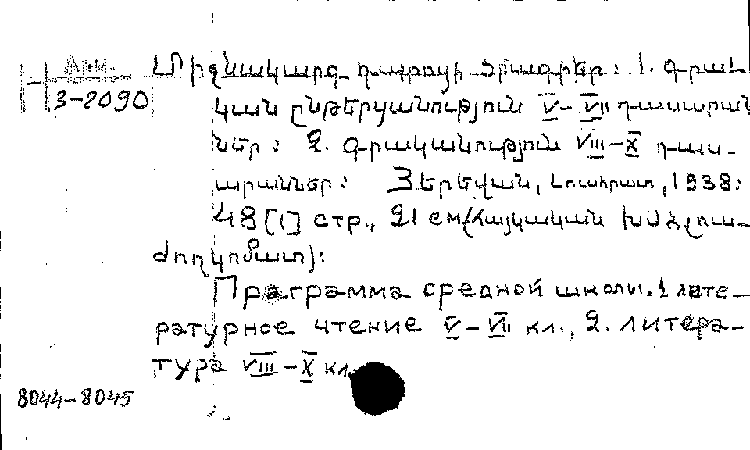 Арм.
3-2090
Միջնակարգ դպրոցի ծրագրեր: 1. գրակ
կան ընթերցանություն V-VII դասարան
ներ: 2. գրականություն VIII-X դաս-
արաններ: Յերեվան, Լուսհրատ, 1938:
48 [1] стр., 21 см (Հայկական ԽՍՀ Լուս-
ժողկոմատ):
Программа средной школи. 1 лите-
ратурное чтение V-VII кл., 2. литера-
тура VIII-X кл.
8044-8045